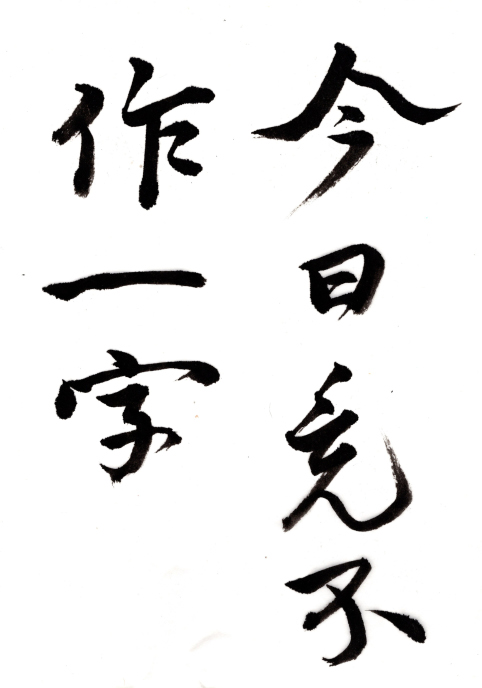 今日竟不
作一字